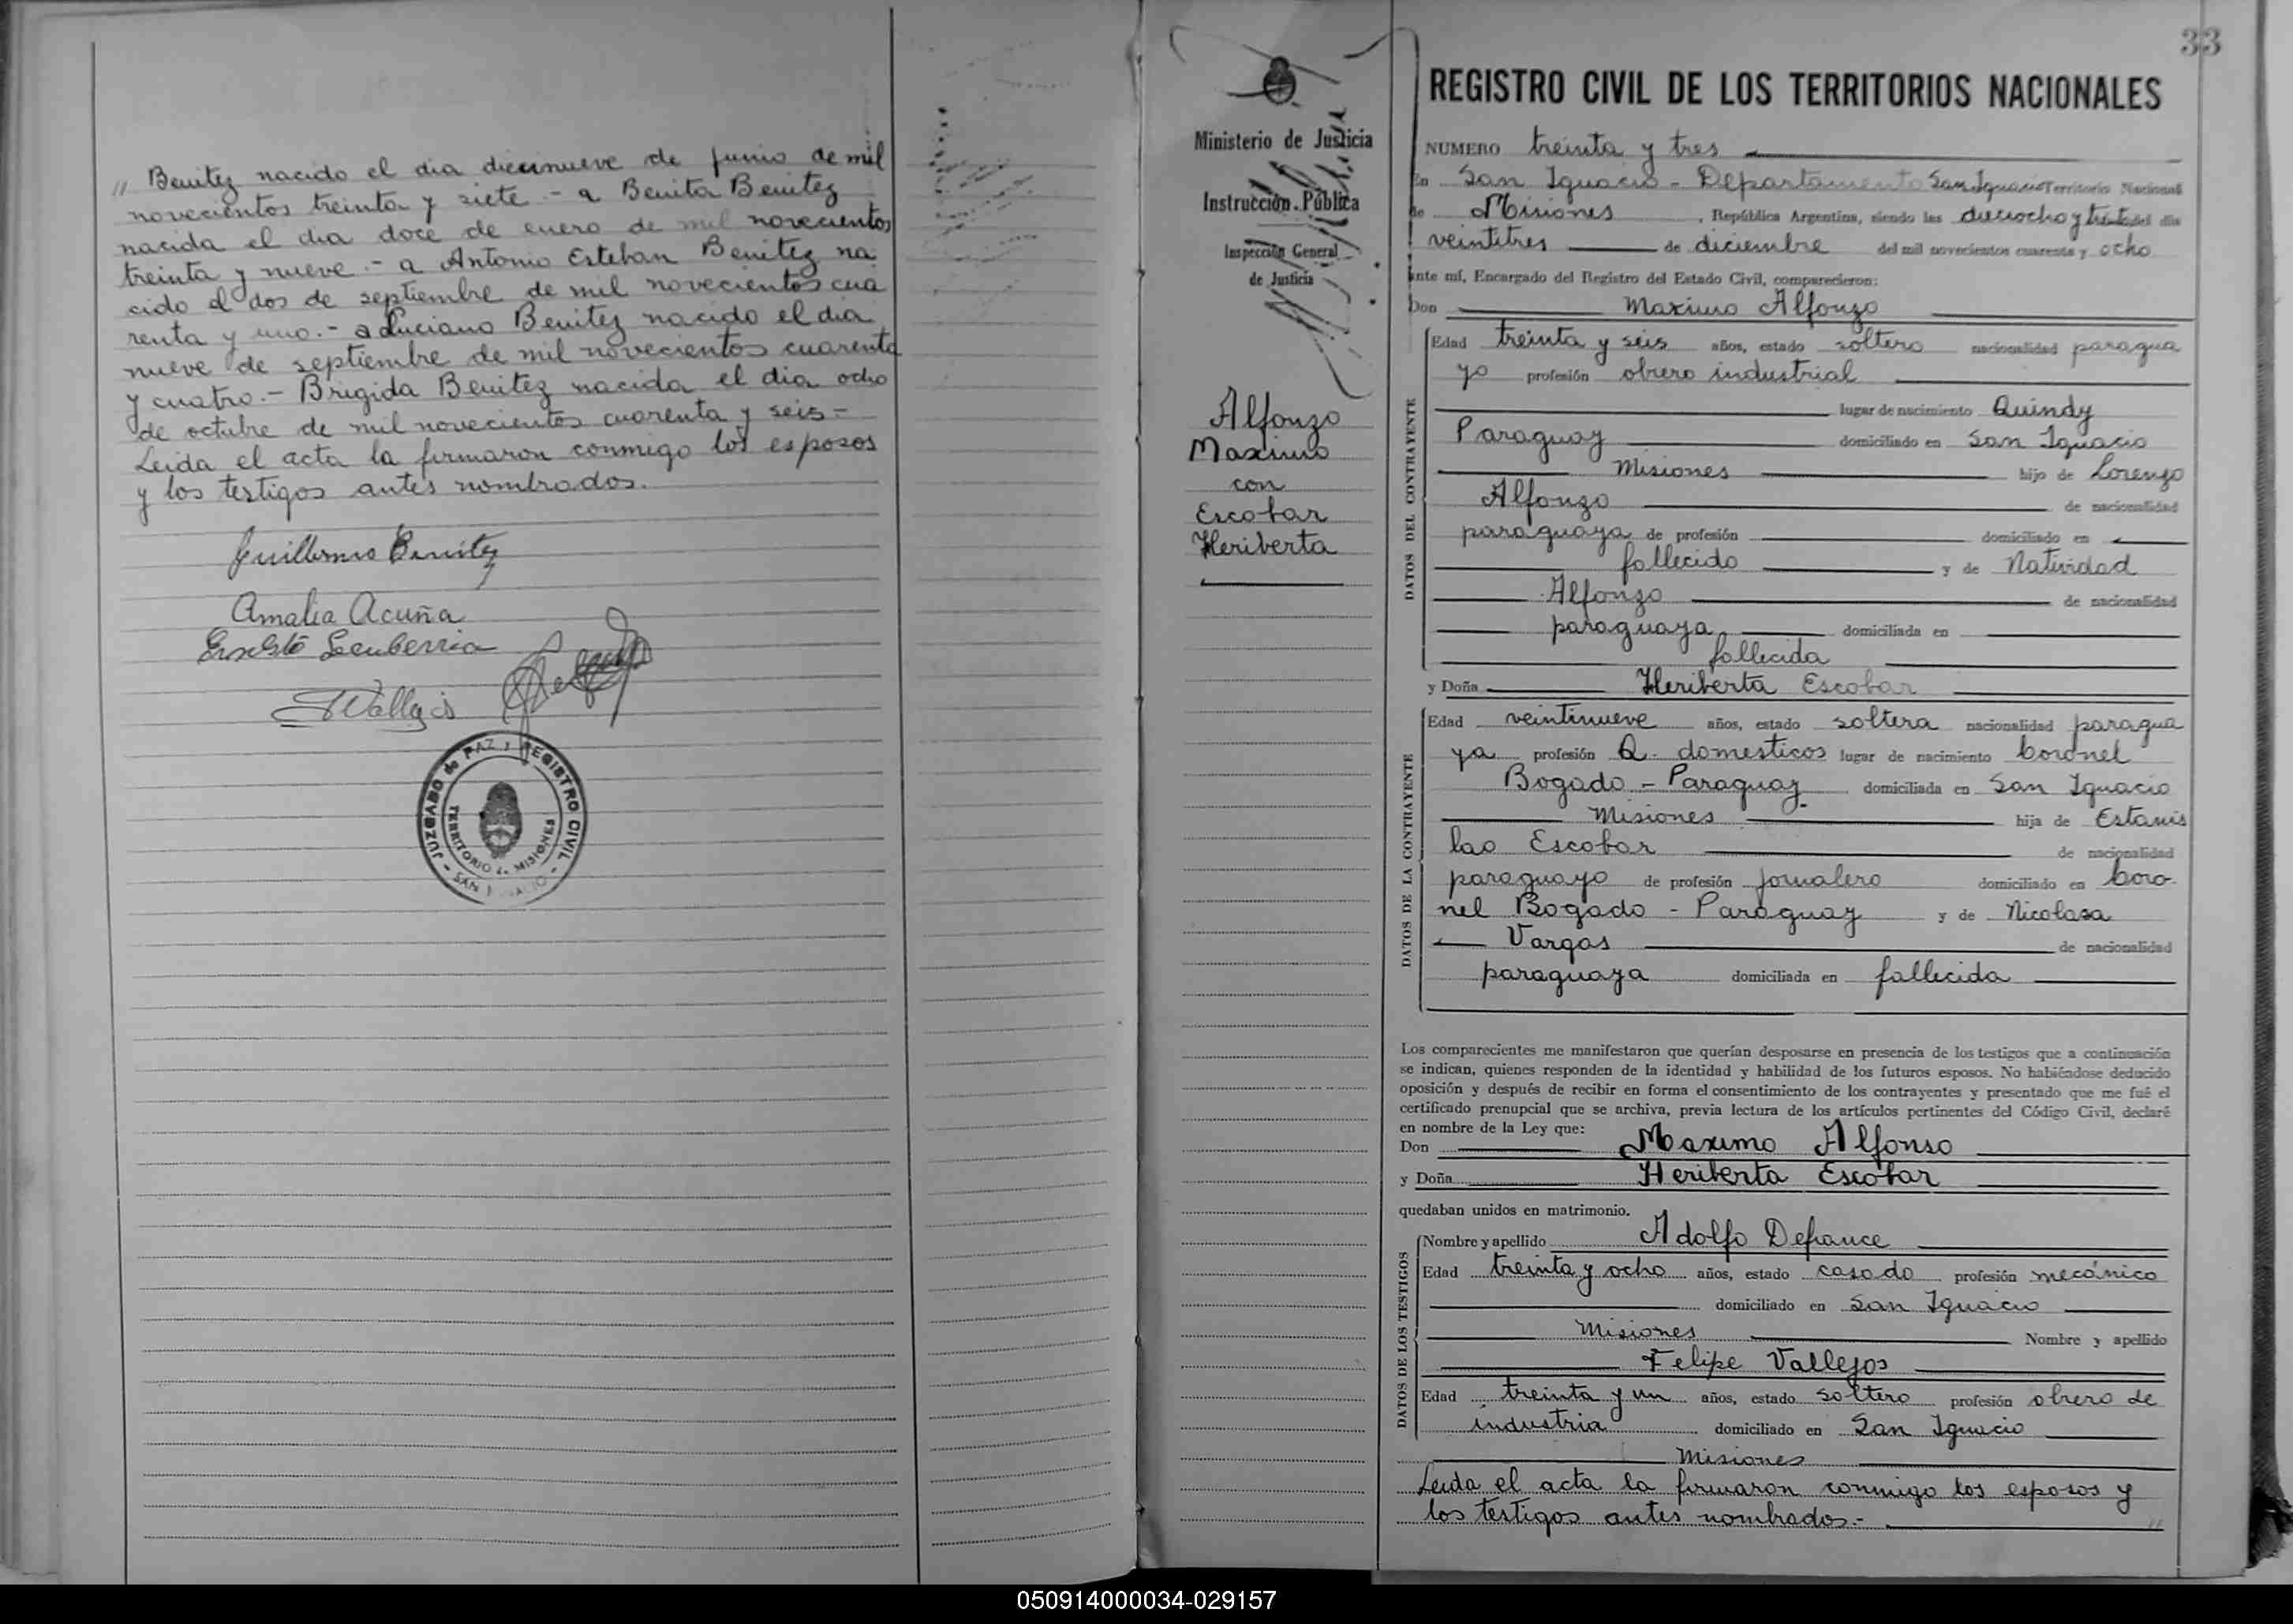 " Benitez nacido el dia diecinueve de junio de mil
novecientos treinta y siete.- a Benita Benitez
nacida el dia doce de enero de mil novecientos
treinta y nueve.- a Antonio Esteban Benitez na
cido el dos de septiembre de mil novecientos cua
renta y uno.- a Luciano Benitez nacido el dia
nueve de septiembre de mil novecientos cuarenta
y cuatro.- Brigida Benitez nacida el dia ocho
de octubre de mil novecientos cuarenta y seis-
Leida el acta la firmaron conmigo los esposos
y los testigos antes nombrados.
Guillermo Benitez
Amalia Acuña
JUZGADO de PAZ Y REGISTRO CIVIL
TERRITORIO d. MISIONES
- SAN
33
Ministerio de Justicia
Instrucción Pública
Inspección General
de Justicia
Alfonzo
Maximo
con
Escobar
Heriberta
REGISTRO CIVIL DE LOS TERRITORIOS NACIONALES
NUMERO treinta y tres
En San Ignacio - Departamento San Ignacio Territorio Nacional
de Misiones, República Argentina, siendo las dieciocho y treinta del día
veintitres de diciembre del mil novecientos cuarenta y ocho
ante mí, Encargado del Registro del Estado Civil, comparecieron:
Don Maximo Alfonzo
DATOS DEL CONTRAYENTE
Edad treinta y seis años, estado soltero nacionalidad paragua
yo profesión obrero industrial
lugar de nacimiento Quindy
Paraguay domiciliado en San Ignacio
Misiones hijo de Lorenzo
Alfonzo de nacionalidad
paraguaya de profesión domiciliado en
fallecido y de Natividad
Alfonzo de nacionalidad
paraguaya domiciliada en
fallecida
y Doña Heriberta Escobar
DATOS DE LA CONTRAYENTE
Edad veintinueve años, estado soltera nacionalidad paragua
ya profesión Q. domesticos lugar de nacimiento Coronel
Bogado - Paraguay domiciliada en San Ignacio
Misiones hija de Estanis
lao Escobar de nacionalidad
paraguayo de profesión jornalero domiciliado en Coro-
nel Bogado - Paraguay y de Nicolasa
Vargas de nacionalidad
paraguaya domiciliada en fallecida
Los comparecientes me manifestaron que querían desposarse en presencia de los testigos que a continuación
se indican, quienes responden de la identidad y habilidad de los futuros esposos. No habiéndose deducido
oposición y después de recibir en forma el consentimiento de los contrayentes y presentado que me fué el
certificado prenupcial que se archiva, previa lectura de los artículos pertinentes del Código Civil, declaré
en nombre de la Ley que:
Don Maximo Alfonso
y Doña Heriberta Escobar
quedaban unidos en matrimonio.
DATOS DE LOS TESTIGOS
Nombre y apellido Adolfo Defrance
Edad treinta y ocho años, estado casado profesión mecánico
domiciliado en San Ignacio
Misiones Nombre y apellido
Felipe Vallejos
Edad treinta y un años, estado soltero profesión obrero de
industria domiciliado en San Ignacio
Misiones
Leida el acta la firmaron conmigo los esposos y
los testigos antes nombrados.- "
050914000034-029157